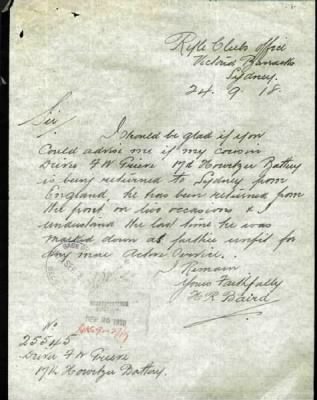 Rifle Clubs Office
Victoria Barracks
Sydney.
24.9.18.
Sir
I should be glad if you
Could advise me if my cousin
Driver F W 17th Howitzer Battery
is being returned to Sydney from
England, he has been returned from
the front on two occasions & I
understand the last time he was
marked down as further unfit for
any more Active Service.
I Remain
Yours Faithfully
Baird
No
25545
Driver F W
17th Howitzer Battery.